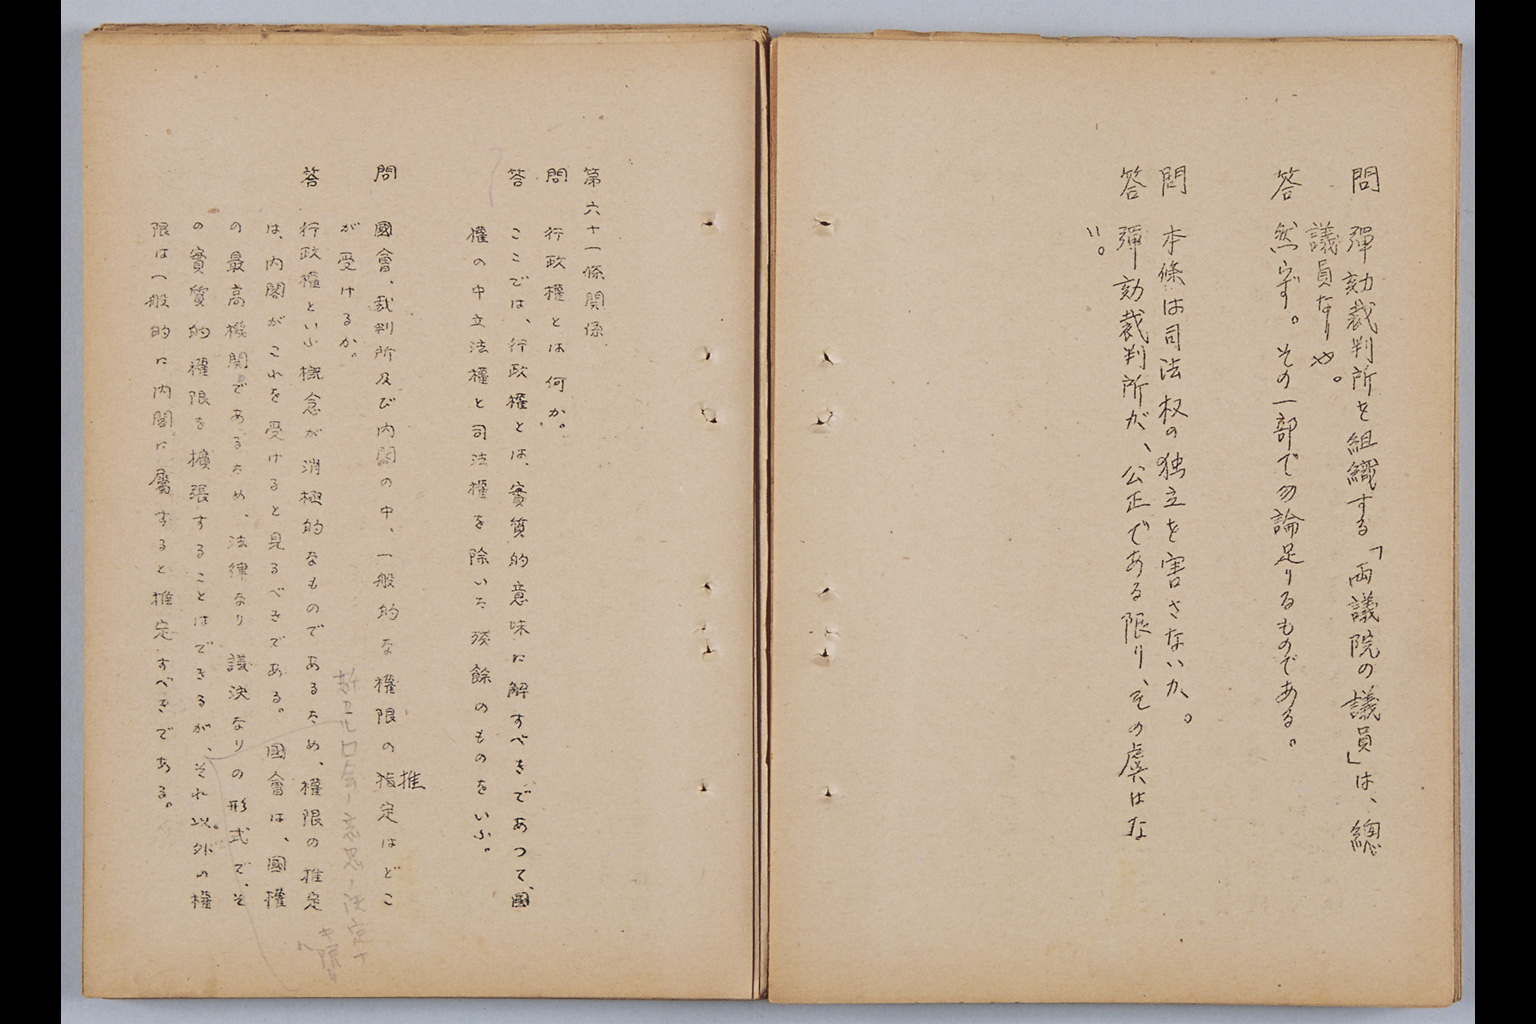 問 彈劾裁判所を組織する「両議院の議員」は、總
議員なりや。
答 然らず。その一部で勿論足りるものである。
問 本條は司法权の独立を害さないか。
答 彈劾裁判所が、公正である限り、その虞はな
い。
第六十一條関係
問 行政權とは何か。
答 ここでは、行政權とは、實質的意味に解すべきであつて、國
權の中立法權と司法權を除いた残餘のものをいふ。
問 國會、裁判所及び内閣の中、一般的な權限の推定はどこ
が受けるか。
答 行政權といふ概念が消極的なものであるため、權限の推定
は、内閣がこれを受けると見るべきである。國會は、國權
の最高機関であるため、法律なり議決なりの形式で、そ
の實質的權限を擴張することはできるが、それ以外の權
限は一般的に内閣に屬すると推定すべきである。